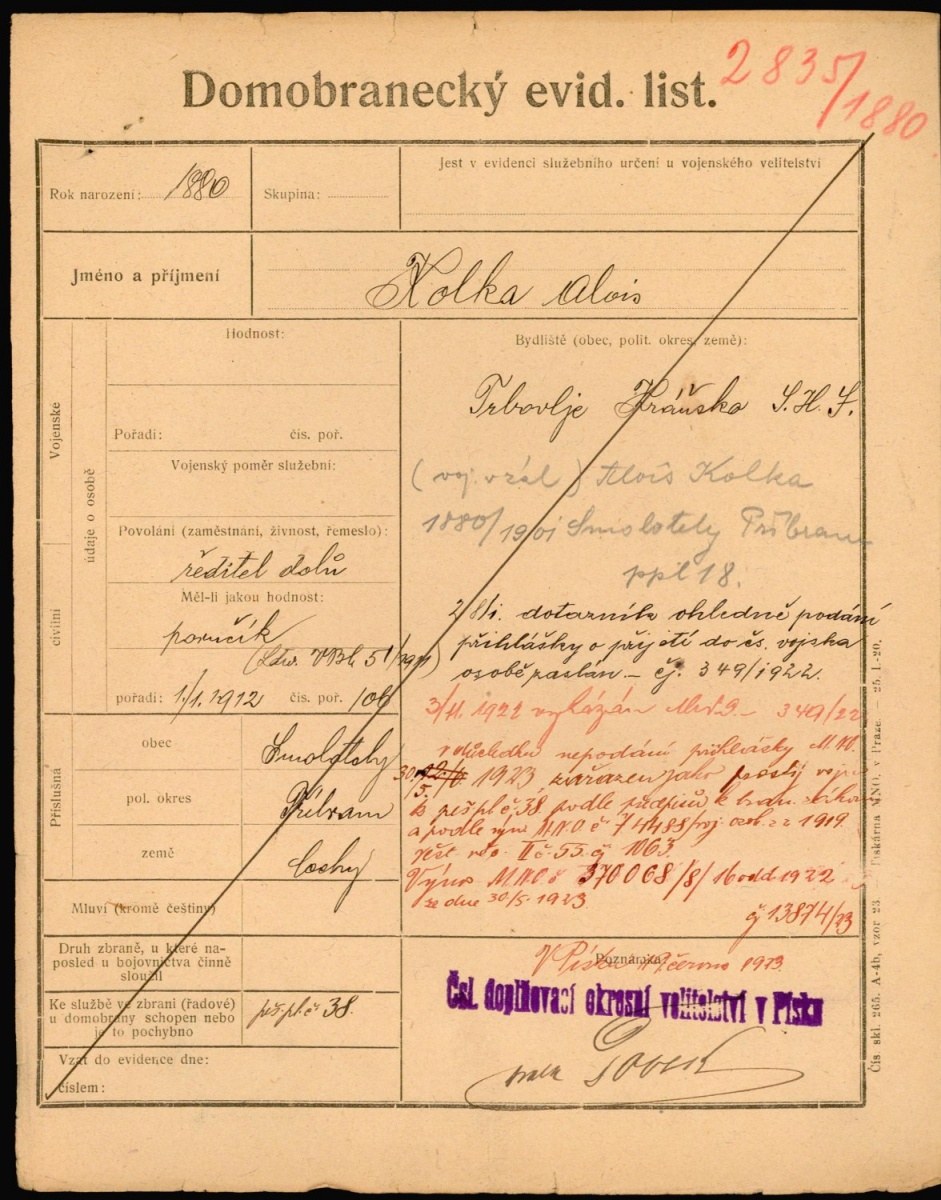 2835/1880
Domobranecký evid. list.
Rok narození: 1880
Skupina:
Jest v evidenci služebního určení u vojenského velitelství
Jméno a příjmení
Kolka Alois
Vojenské
civilní
údaje o osobě
Hodnost:
Pořadí: čís. poř.
Vojenský poměr služební:
Povolání (zaměstnání, živnost, řemeslo):
ředitel dolů
Měl-li jakou hodnost:
poručík
(Ldw. VBl. 51/1911)
pořadí: 1/1. 1912 čís. poř. 106
Příslušná
obec Smolotely
pol. okres Příbram
země Čechy
Mluví (kromě češtiny)
Druh zbraně, u které na-
posled u bojovnictva činně
sloužil
Ke službě ve zbrani (řadové)
u domobrany schopen nebo
je to pochybno
pěš. pl. č 38.
Vzat do evidence dne:
číslem:
Bydliště (obec, polit. okres, země):
Trbovlje S. H. S.
(voj. ) Alois Kolka
1880/1901 Smolotely Příbram
ppl 18.
2/8/1. dotazník ohledně podání
přihlášky o přijetí do čs. vojska
osobě zaslán – čj. 349/1922.
3/11. 1922 349/22
v důsledku nepodání přihlášky
30./5. 1923 zařazen jako prostý
pěš pl č 38 podle předpisů k bran.
a podle výn M.N.O č 74488/ 1919.
věst. II č. 55. čj 1063.
Výnos M.N.O. č 370068/8/16 odd 1922
ze dne 30/5. 1923.
čj 13874/23
Poznámka:
V Písku června 1923
Čsl. doplňovací okresní velitelství v Písku
Čís. skl. 265. A-4b, vzor 23. — Tiskárna MNO. v Praze. — 25. I.-20.